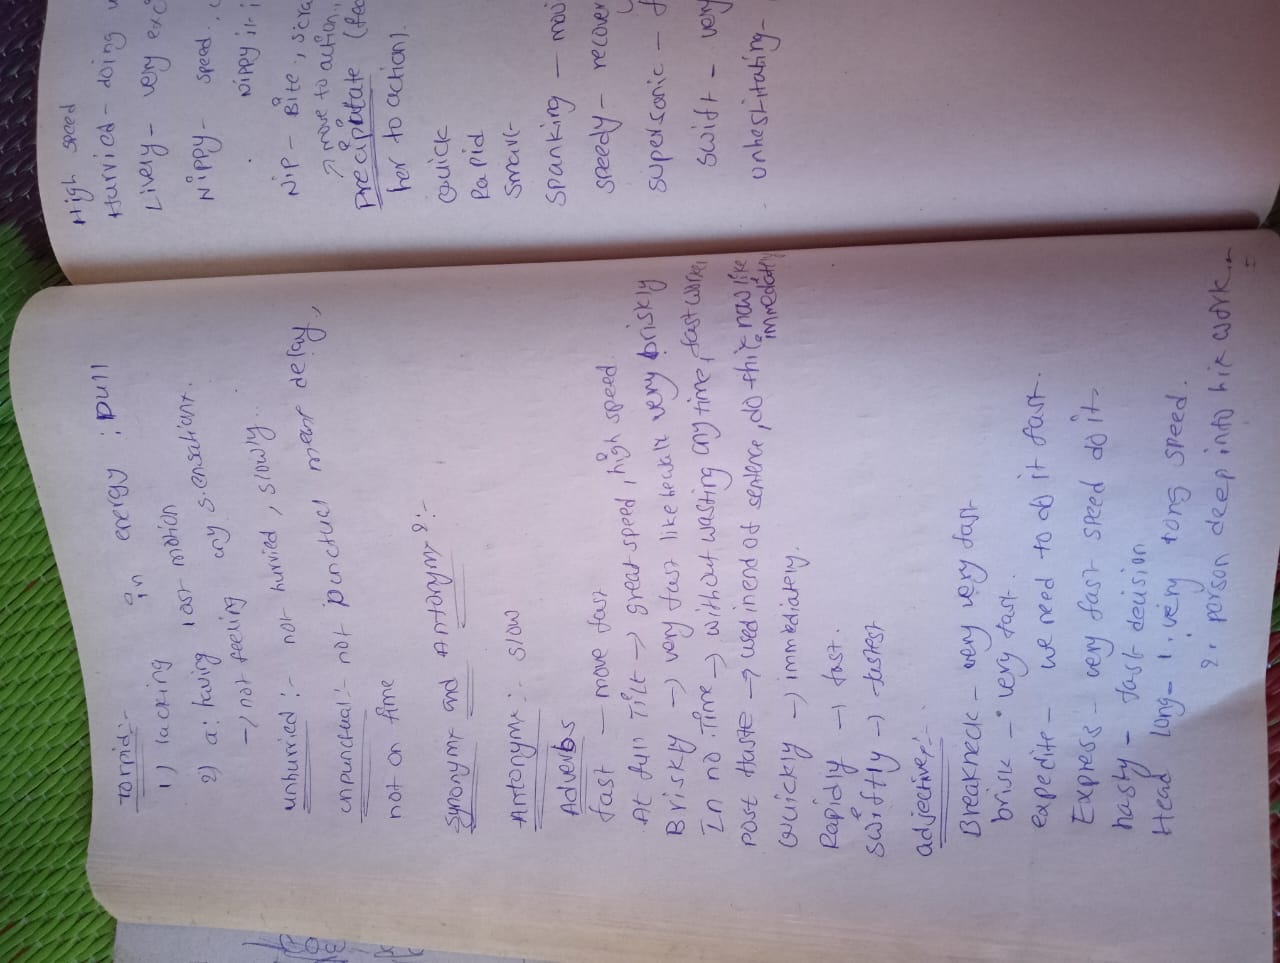 Torpid:-
1) lacking in energy ; Dull
2) a: having lost motion
→ not feeling any sensations.
unhurried :- not hurried, slowly.
unpunctual:- not punctual mean delay,
not on time
Synonyms and Antonyms :-
Antonyms :- slow
Adverbs
fast — move fast
At full Tilt → great speed, high speed
Briskly → very fast like walk very briskly
In no time → without wasting any time, fast work,
Post Haste → used in end of sentence, do this now like
immediately
Quickly → immediately.
Rapidly → fast.
Swiftly → fastest
adjective:-
Breakneck - very very fast
brisk - very fast.
expedite - we need to do it fast.
Express - very fast speed do it
hasty - fast decision
Head long - 1. very long speed.
2. person deep into his work
High speed
Hurried - doing
Lively - very
Nippy - speed.
Nippy
Nip - Bite,
→ move to action,
Precipitate
her to action).
Quick
Rapid
Smart
Spanking -
speedy - recover
supersonic -
swift - very
unhesitating -